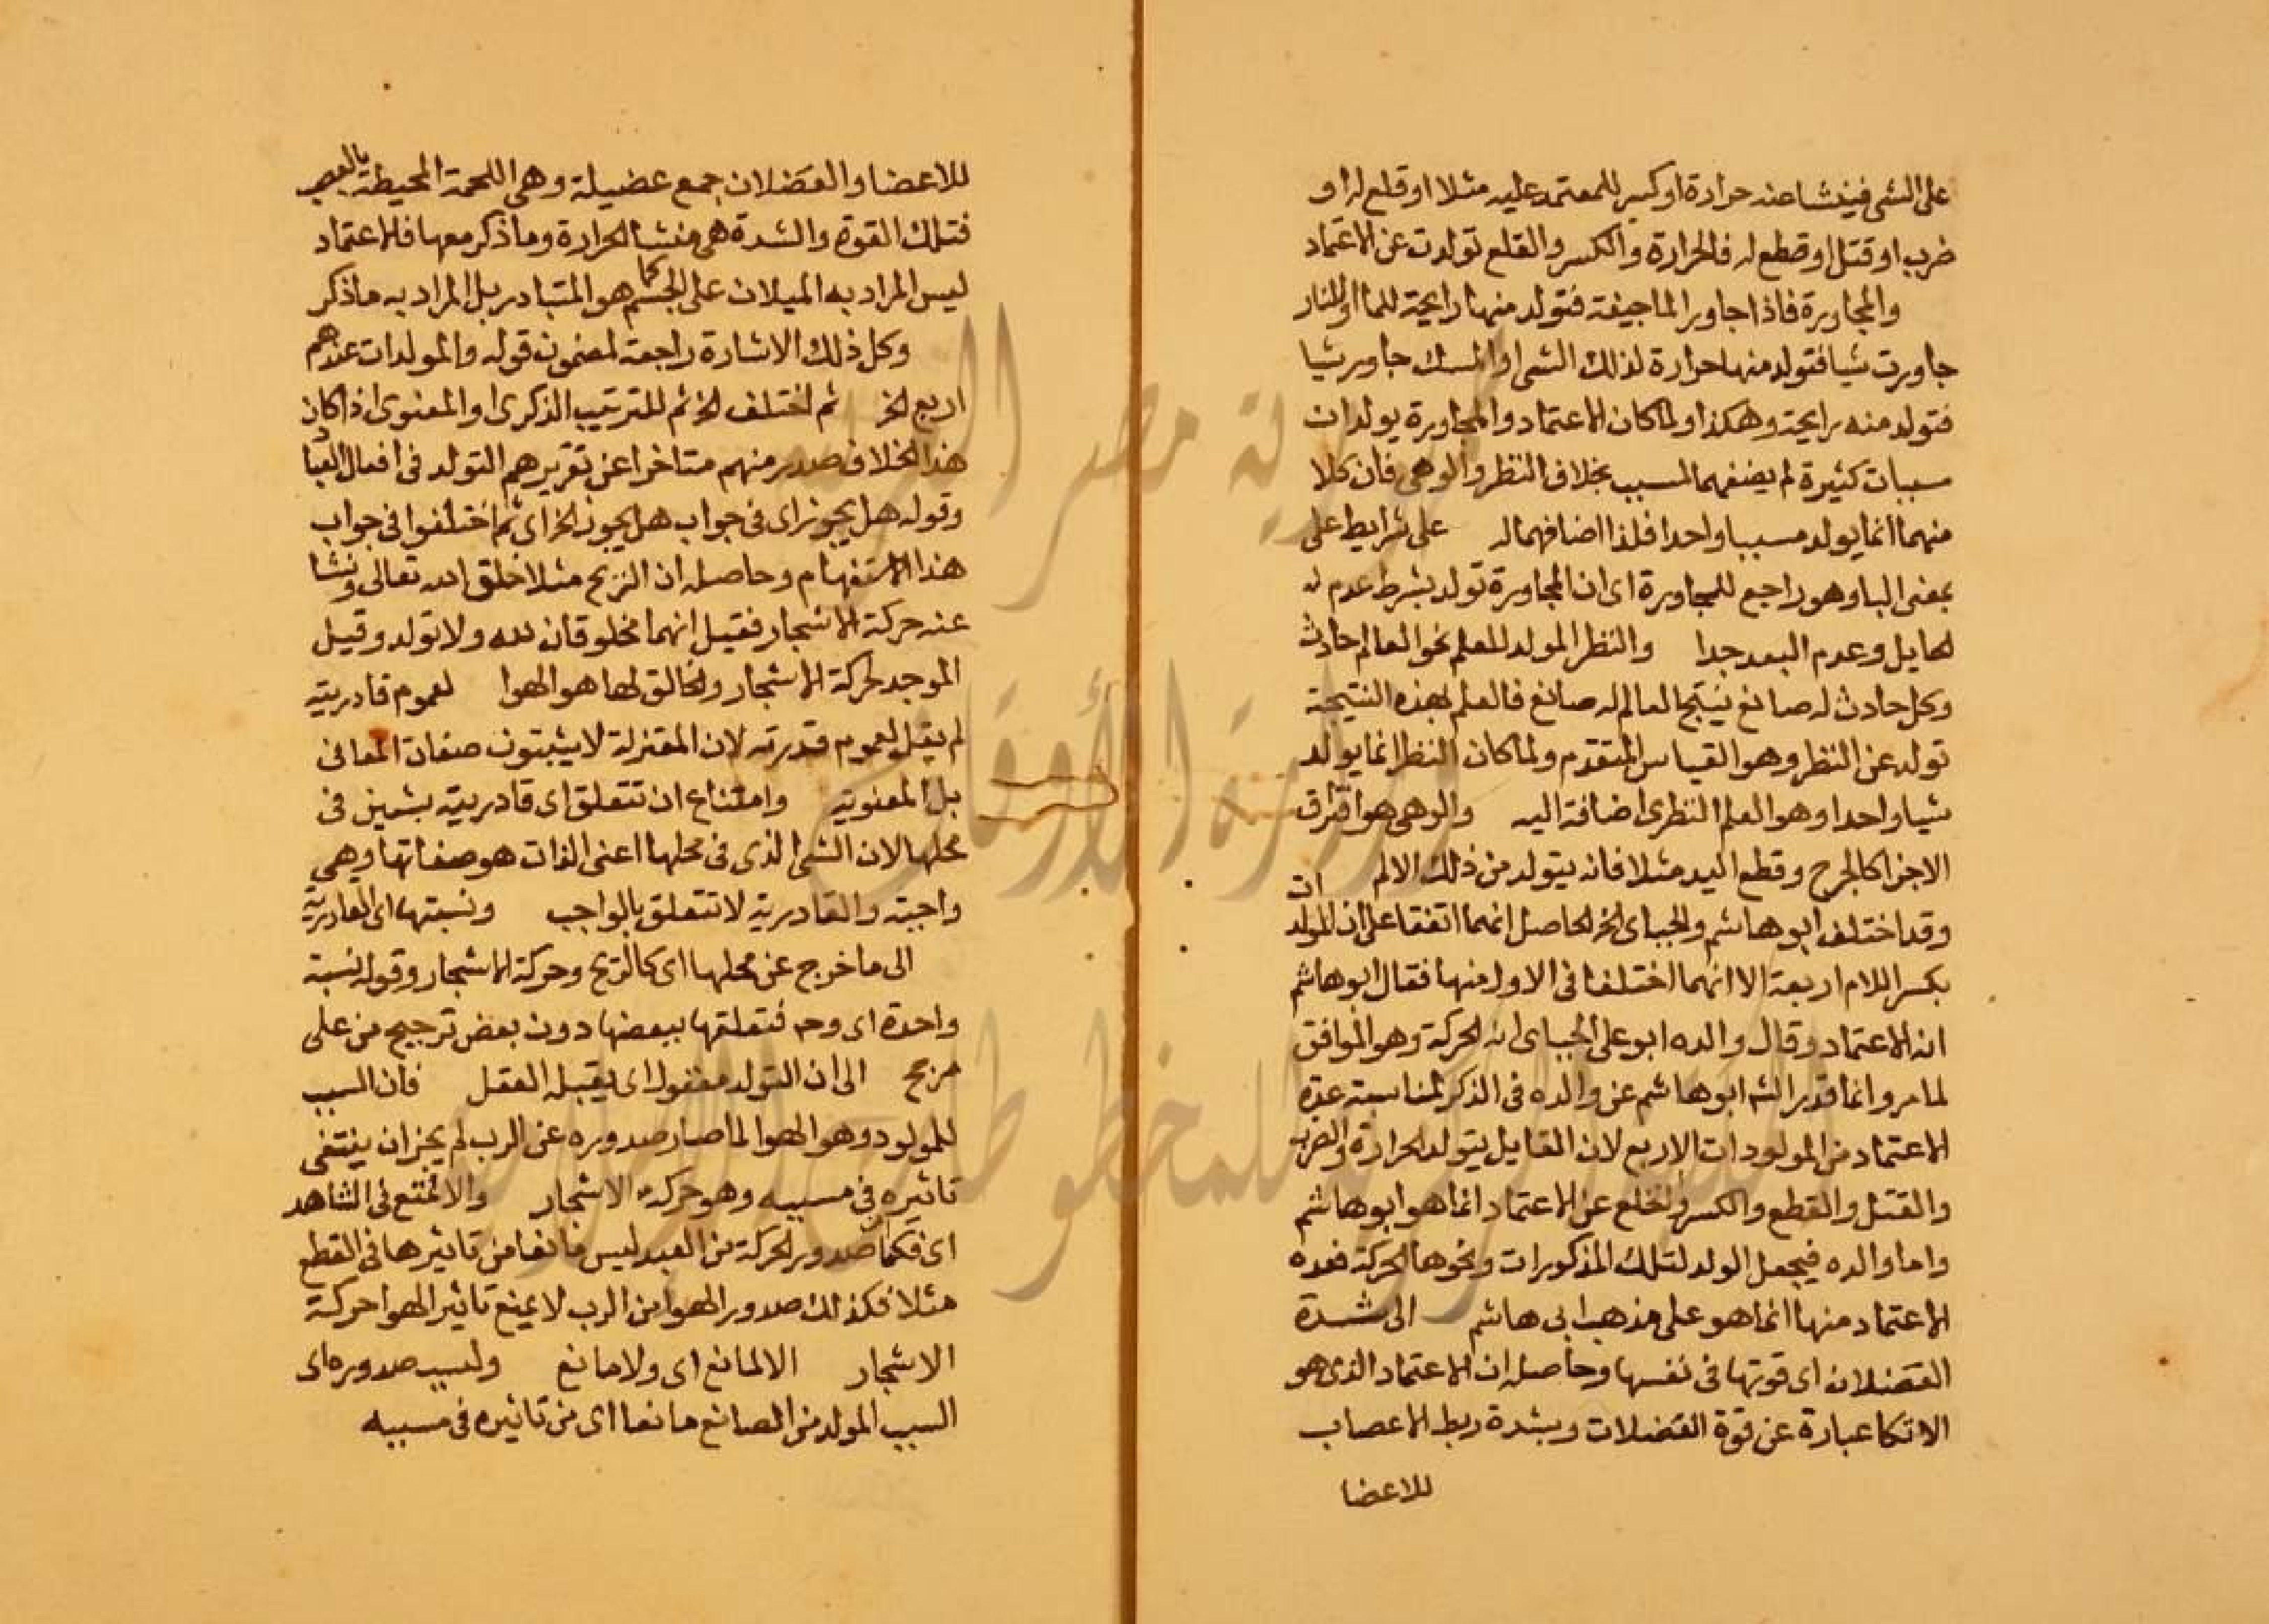 على الشى فينشا عنه حرارة او كسر للمعتمد عليه مثلا او قلع له او
ضرب او قتل او قطع له فالحرارة والكسر والقلع تولدت عن الاعتماد
والمجاورة فاذا جاور الما جيفة فتولد منها رايحة للما او النار
جاورت شيا فتولد منها حرارة لذلك الشى او المسك جاور شيا
فتولد منه رايحة وهكذا ولما كان الاعتماد والمجاورة يولدان
مسببات كثيرة لم يضفهما لمسبب بخلاف النظر والوهى فان كلا
منهما انما يولد مسببا واحدا فلذا اضافهما له على شرايط على
بمعنى البا وهو راجع للمجاورة اى ان المجاورة تولد بشرط عدم
لحايل وعدم البعد جدا والنظر المولد للعلم نحو العالم حادث
وكل حادث له صانع ينتج العالم له صانع فالعلم بهذه النتيجة
تولد عن النظر وهو القياس المتقدم ولما كان النظر انما يولد
شيا واحدا وهو العلم النظرى اضافة اليه والوهى هو افتراق
الاجزا كالجرح وقطع اليد مثلا فانه يتولد من ذلك الالم
وقد اختلف ابو هاشم والجباى الخ الحاصل انهما اتفقا على ان المولدات
بكسر اللام اربعة الا انهما اختلفا فى الاول منها فقال ابو هاشم
انه الاعتماد وقال والده ابو على الجباى انه الحركة وهو الموافق
لما مر وانما قدم الشم ابو هاشم عن والده فى الذكر لمناسبة عدة
الاعتماد من المولودات الاربع لان القايل يتولد الحرارة والضرب
والقتل والقطع والكسر والخلع عن الاعتماد انما هو ابو هاشم
واما والده فيجعل الولد لتلك المذكورات ونحوها الحركة فعده
الاعتماد منها انما هو على مذهب ابى هاشم الى شدة
العضلان اى قوتها فى نفسها وحاصله ان الاعتماد الذى هو
الاتكا عبارة عن قوة العضلات وبشدة ربط الاعصاب
للاعضا
للاعضا والعضلان جمع عضيلة وهى اللحمة المحيطة بالعصب
فتلك القوة والشدة هى منشا الحرارة وما ذكر معها فالاعتماد
ليس المراد به الميلان على الجسم كما هو المتبادر بل المراد به ما ذكر
وكل ذلك الاشارة راجعة لمضمون قوله والمولدات عندهم
اربع الخ ثم اختلف الخ ثم للترتيب الذكرى او المعنوى اذا كان
هذا الخلاف صدر منهم متاخرا عن تقريرهم التولد فى افعال العباد
وقوله هل يجوز اى فى جواب هل يجوز الخ اى ثم اختلفوا فى جواب
هذا الاستفهام وحاصله ان الريح مثلا خلق الله تعالى ونشا
عنه حركة الاشجار فقيل انهما مخلوقان لله ولا تولد وقيل
الموجد لحركة الاشجار والخالق لها هو الهوا لعموم قادريته
لم يقل لعموم قدرته لان المعتزلة لا يثبتون صفات المعانى
بل المعنوية وامتناع ان تتعلق اى قادريته بشيئين فى
محلها لان الشى الذى فى محلها اعنى الذات هو صفاتها وهى
واجبة والقادرية لا تتعلق بالواجب ونسبتها اى القادرية
الى ما خرج عن محلها اى كالريح وحركة الاشجار وقوله نسبة
واحدة اى وح فتعلقها ببعضها دون بعض ترجيح من على
مرجح الى ان التولد معقول اى يقبله العقل فان السبب
للمولود وهو الهوا لما صار صدوره عن الرب لم يجز ان ينتفى
تاثيره فى مسببه وهو حركة الاشجار والا لمتنع فى الشاهد
اى فكما ان صدور الحركة من العبد ليس مانعا من تاثيرها فى القطع
مثلا فكذلك صدور الهوا من الرب لا يمنع تاثير الهوا حركة
الاشجار الا لمانع اى ولا مانع وليس صدوره اى
السبب المولد من الصانع مانعا اى من تاثيره فى مسببه